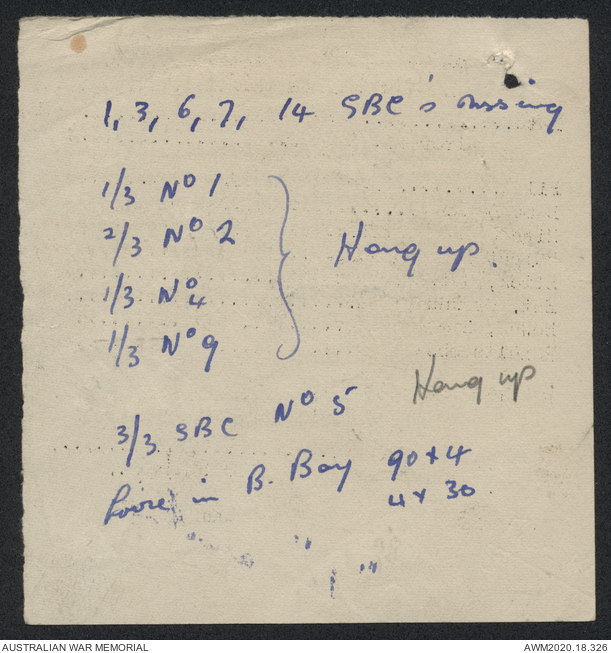 1, 3, 6, 7, 14 SBC's missing
1/3 No 1
2/3 No 2
1/3 No 4
1/3 No 9
Hang up.
3/3 SBC No 5 Hang up
Loose in B. Bay 90 x 4
4 x 30
" "
AUSTRALIAN WAR MEMORIAL AWM2020.18.326